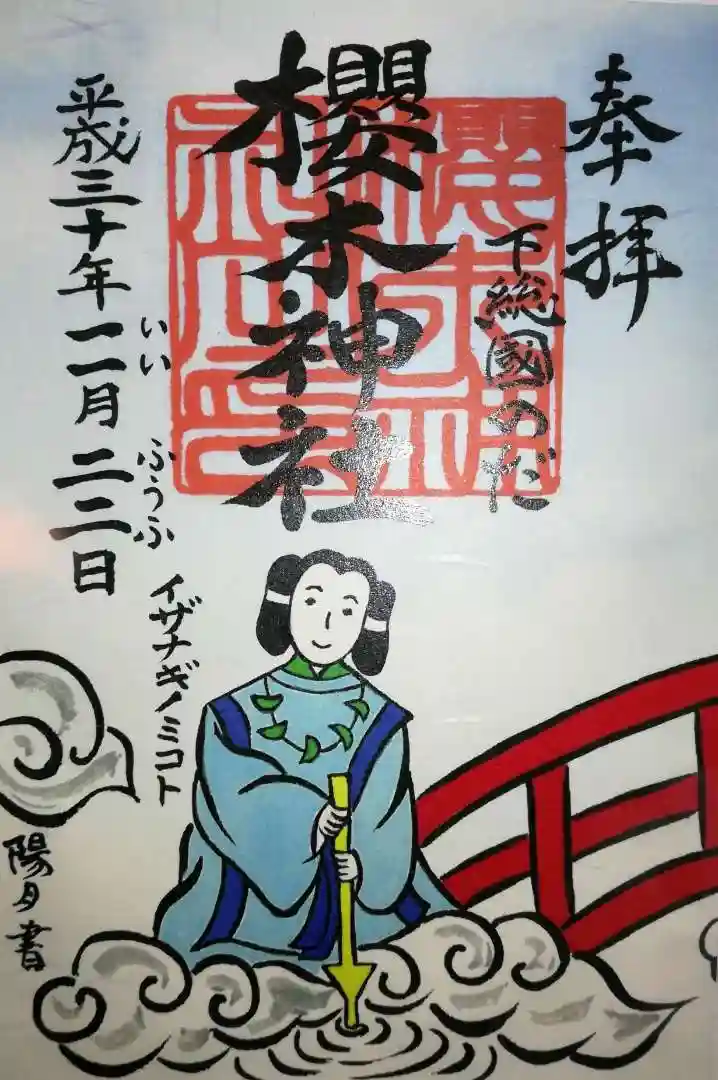 奉拝
下総國のだ
櫻木神社
平成三十年一一月二二日
いい
ふうふ
イザナギノミコト
陽夕書